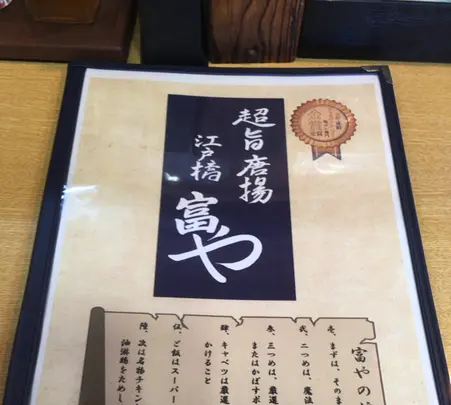 超旨唐揚
江戸橋
富や
富やの
壱、まずは、そのま
弐、二つめは、魔法
参、三つめは、厳選
またはかぼすポ
肆、キャベツは厳選
かけること
伍、ご飯はスーパー
陸、次は名物チキン
油淋鶏をためし